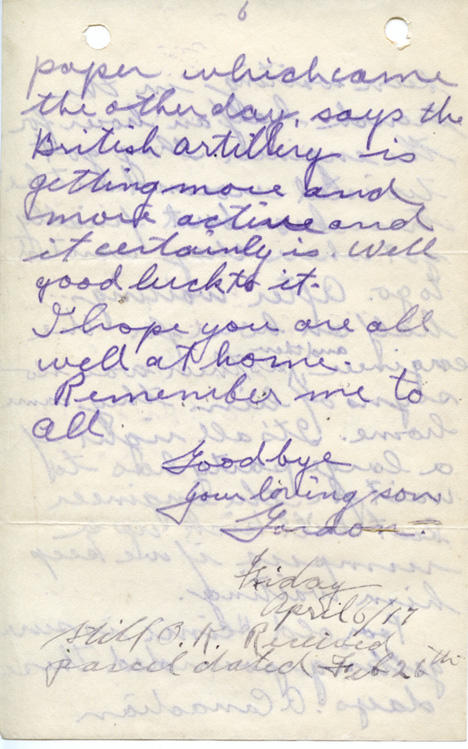 6
paper which came
the other day, says the
British artillery is
getting more and
more active and
it certainly is. Well
good luck to it.
I hope you are all
well at home.
Remember me to
all
Goodbye
Your loving son
Gordon.
Friday
April 6/17
Still O.K. Received
parcel dated Feb 26th